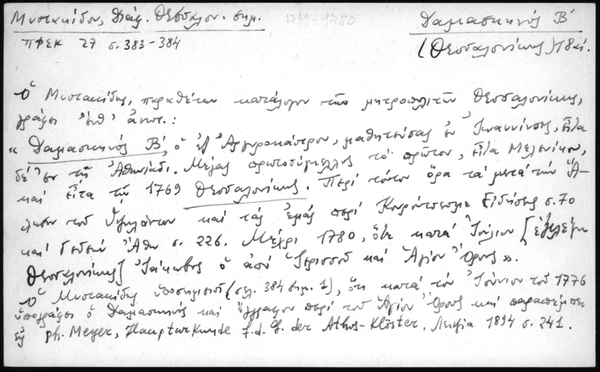 Μυστακίδου, Διάφ. Θεσσαλον. σημ. 1769-1780 Δαμασκηνός Β΄
ΠΦΣΚ 27 σ. 383-384 (Θεσσαλονίκης) 18αι.
Ὁ Μυστακίδης, παραθέτων κατάλογον τῶν μητροπολιτῶν Θεσσαλονίκης,
γράφει ἐνθ᾽ ἀνωτ.:
« Δαμασκηνός Β΄, ὁ ἐξ Ἀργυροκάστρου, μαθητεύσας ἐν Ἰωαννίνοις, εἶτα
δέ ἐν τῇ Ἀθωνιάδι. Μέγας πρωτοσύγκελλος τό πρῶτον, εἶτα Μελενίκου,
καί εἶτα τῷ 1769 Θεσσαλονίκης. Περί τούτου ὅρα τά μετά τήν Ἅ-
λωσιν τοῦ Ὑψηλάντου καί τάς ἐμάς περί Εἰδήσεις σ. 70
καί Γεδεών Ἄθω σ. 226. Μέχρι 1780, ὅτε κατά Ἰούλιον [ἐξελέγη
Θεσσαλονίκης] Ἰάκωβος ὁ ἀπό Ἱερισσοῦ καί Ἁγίου Ὄρους ».
Ὁ Μυστακίδης ὑποσημειοῖ (σελ. 384 σημ. 1), ὅτι κατά τόν Ἰούνιον τοῦ 1776
ὑπογράφει ὁ Δαμασκηνός καί ἔγγραφον περί τοῦ Ἁγίου Ὄρους καί παραπέμπει
εἰς Ph. Meyer, Haupturkunde f. d. G. der Athos-Klöster, Λειψία 1894 σ. 241.